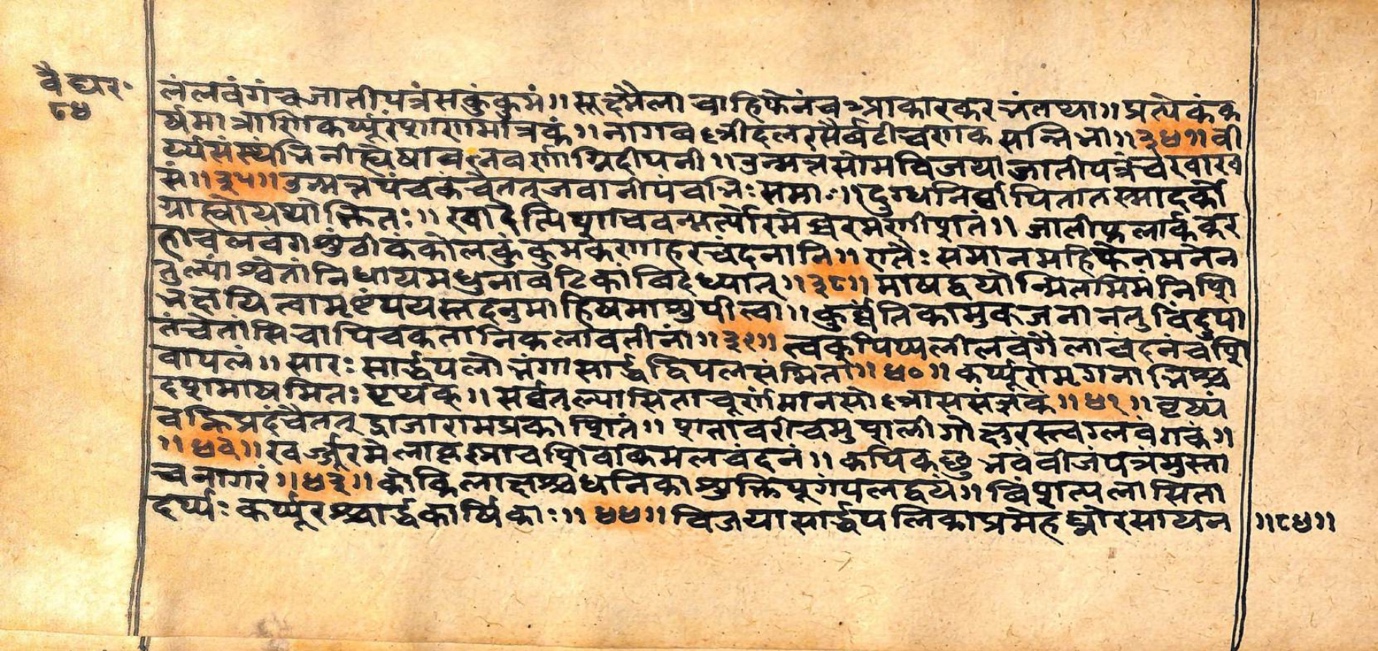 वैद्यर॰
८४
लंलवंगंचजातीपत्रंसकुंकुमं॥ सूक्ष्मैलाचाहिफेनंचआकारकरभंतथा॥ प्रत्येकंक
र्षमात्राणिकर्प्पूरंशाणमात्रकं॥ नागवल्लीदलरसैर्वटीचणकसन्निभा॥३४॥ वी
र्य्यसंस्थंभिनीह्येषाबलवर्णाग्निदीपनी॥ उन्मत्तसोमविजयाजातीपत्रंचखाख
सं॥३५॥ उन्मत्तपंचकंचैतत्जवानीपंचभिःसमा॥ दुग्धनिर्वापितातस्मादर्को
ग्राह्योयथोक्तितः॥ खादेत्पिशाचवन्मर्त्यो जातीफलार्ककर
हाटलवंगशुंठीकंकोलकुंकुमकणाहरिचंदनानि॥ एतैःसमानमहिफेनमनेन
तुल्यांश्वेतांनिधायमधुनावटिकांविदध्यात्॥३८॥ माषद्वयोन्मितमिमंनिशि
भक्षयित्वामृष्टंपयस्तदनुमाहिषमाशुपीत्वा॥ कुर्वंतिकामुकजनानतुविंदुपा
तंचेतांसिचापिचकितानिकलावतीनां॥३९॥ त्वक्पिप्पलीलवंगैलाचंदनंचंशि
वापलं॥ सारःसार्द्धपलोभंगासार्द्धद्विपलसंमिता॥४०॥ कर्प्पूरोमृगनाभिश्च
दशमाषमितःपृथक्॥ सर्वतुल्यासिताचूर्णंमानसोल्लाससंज्ञकं॥४१॥ वृष्यं
वह्निप्रदंचैतत्द्राजारामप्रकाशितं॥ शतावरीचमुशलीगोक्षुरस्त्वग्लवंगकं॥
॥४२॥ खर्ज्जूरमेलाद्राक्षाचशिवाकमलचंदनं॥ कपिकछुभवंवीजंपत्रंमुस्ता
चनागरं॥४३॥ कोकिलाक्षश्चधनिकाशुक्तिपूगंपलद्वयं॥ विंशत्पलासिता
दर्य्यःकर्प्पूरश्चार्द्धकार्षिकाः॥४४॥ विजयासार्द्धपलिकाप्रमेहघ्नोरसायन ॥८४॥